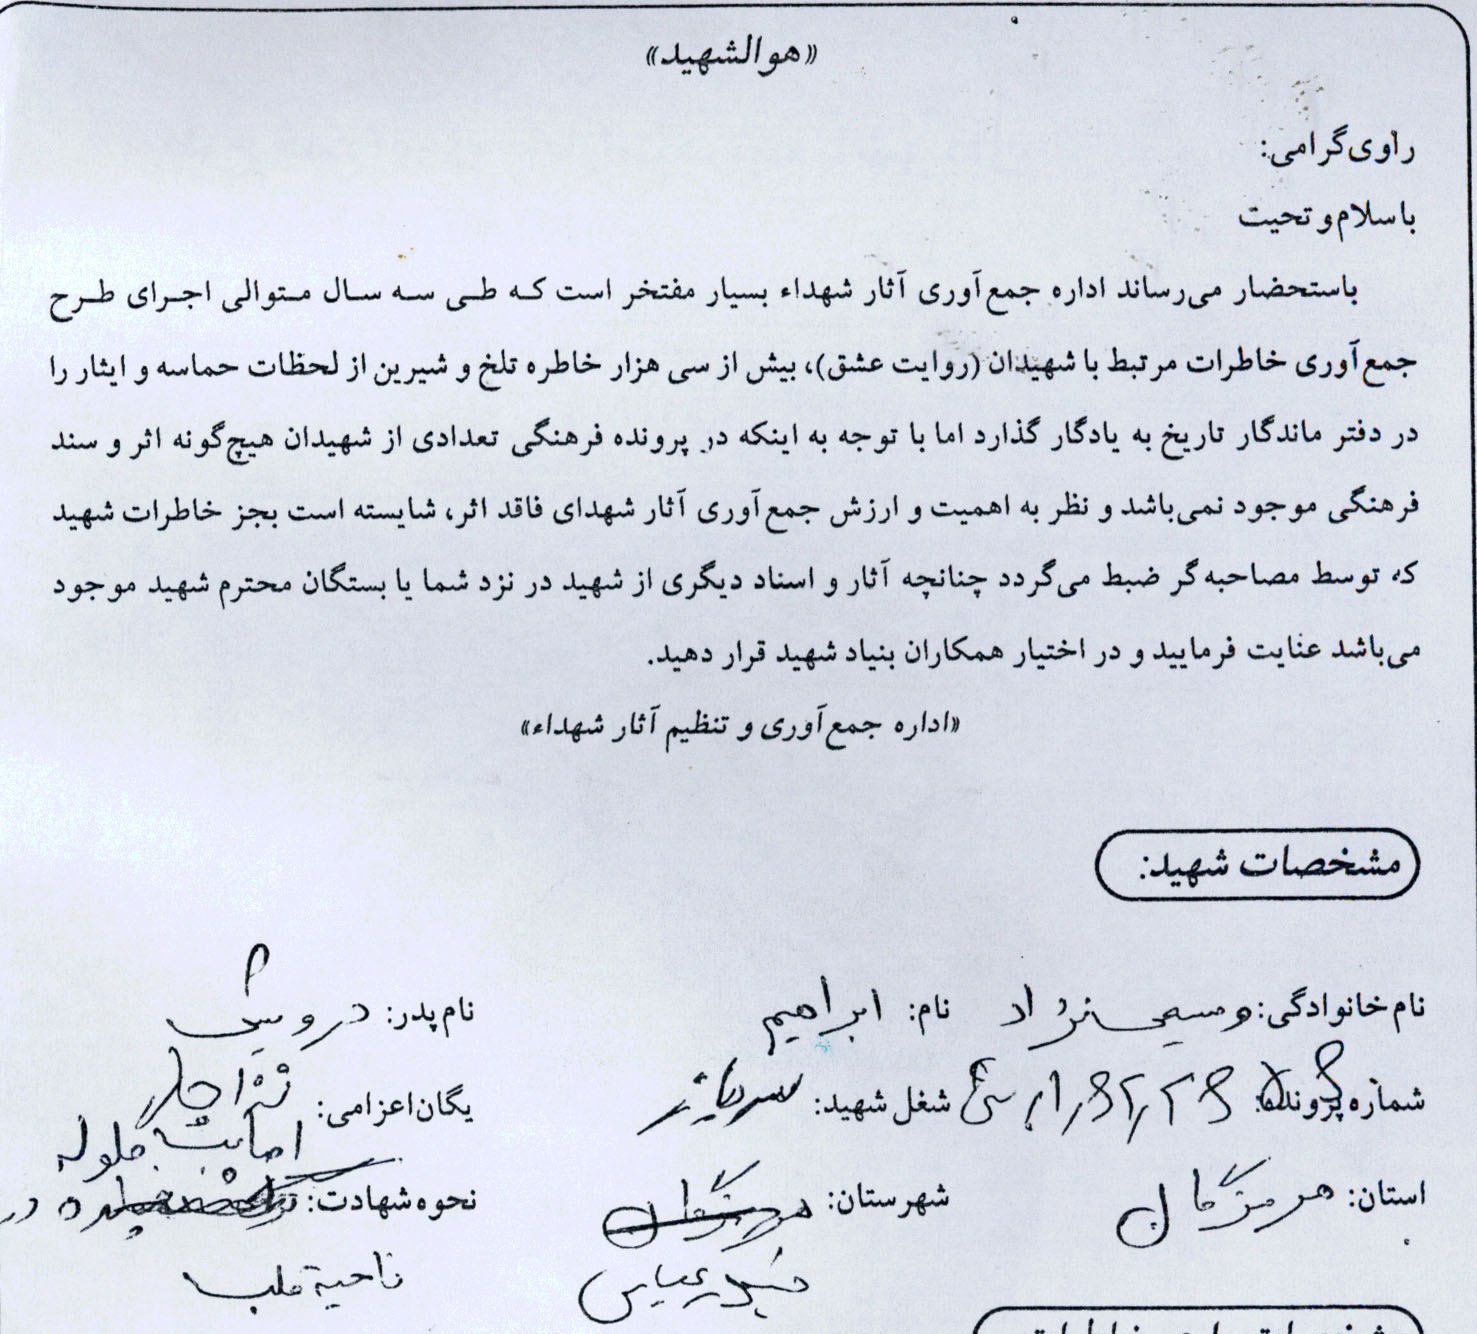 «هوالشهید»
راوی‌گرامی:
باسلام و تحیت
باستحضار می‌رساند اداره جمع‌آوری آثار شهداء بسیار مفتخر است که طی سه سال متوالی اجرای طرح
جمع‌آوری خاطرات مرتبط با شهیدان (روایت عشق)، بیش از سی هزار خاطره تلخ و شیرین از لحظات حماسه و ایثار را
در دفتر ماندگار تاریخ به یادگار گذارد اما با توجه به اینکه در پرونده فرهنگی تعدادی از شهیدان هیچ‌گونه اثر و سند
فرهنگی موجود نمی‌باشد و نظر به اهمیت و ارزش جمع‌آوری آثار شهدای فاقد اثر، شایسته است بجز خاطرات شهید
که توسط مصاحبه‌گر ضبط می‌گردد چنانچه آثار و اسناد دیگری از شهید در نزد شما یا بستگان محترم شهید موجود
می‌باشد عنایت فرمایید و در اختیار همکاران بنیاد شهید قرار دهید.
«اداره جمع‌آوری و تنظیم آثار شهداء»
مشخصات شهید:
نام خانوادگی: نژاد نام: ابراهیم نام پدر: درویش
شماره پرونده: شغل شهید: سرباز یگان اعزامی: نزاجا
اصابت گلوله
استان: هرمزگان شهرستان: هرمزگان نحوه شهادت: در
بندرعباس ناحیه قلب